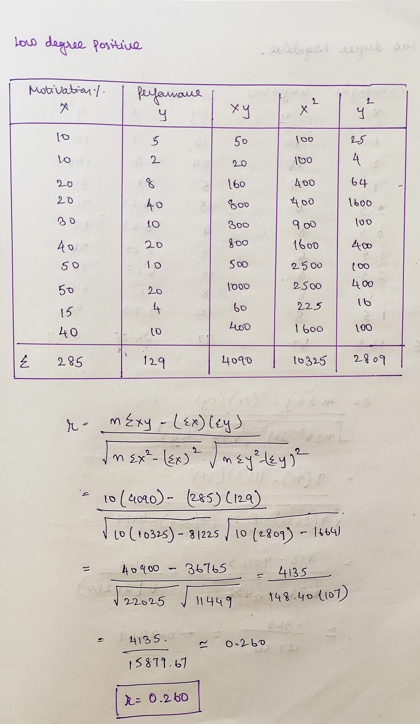 Low degree positive
Motivation% x | Perfomance y | xy | x² | y²
10 | 5 | 50 | 100 | 25
10 | 2 | 20 | 100 | 4
20 | 8 | 160 | 400 | 64
20 | 40 | 800 | 400 | 1600
30 | 10 | 300 | 900 | 100
40 | 20 | 800 | 1600 | 400
50 | 10 | 500 | 2500 | 100
50 | 20 | 1000 | 2500 | 400
15 | 4 | 60 | 225 | 16
40 | 10 | 400 | 1600 | 100
Σ 285 | 129 | 4090 | 10325 | 2809
r = nΣxy - (Σx)(Σy) / √nΣx² - (Σx)² √nΣy² - (Σy)²
= 10(4090) - (285)(129) / √10(10325) - 81225 √10(2809) - 16641
= 40900 - 36765 / √22025 √11449 = 4135 / 148.40(107)
= 4135. / 15879.67 ≃ 0.260
r = 0.260